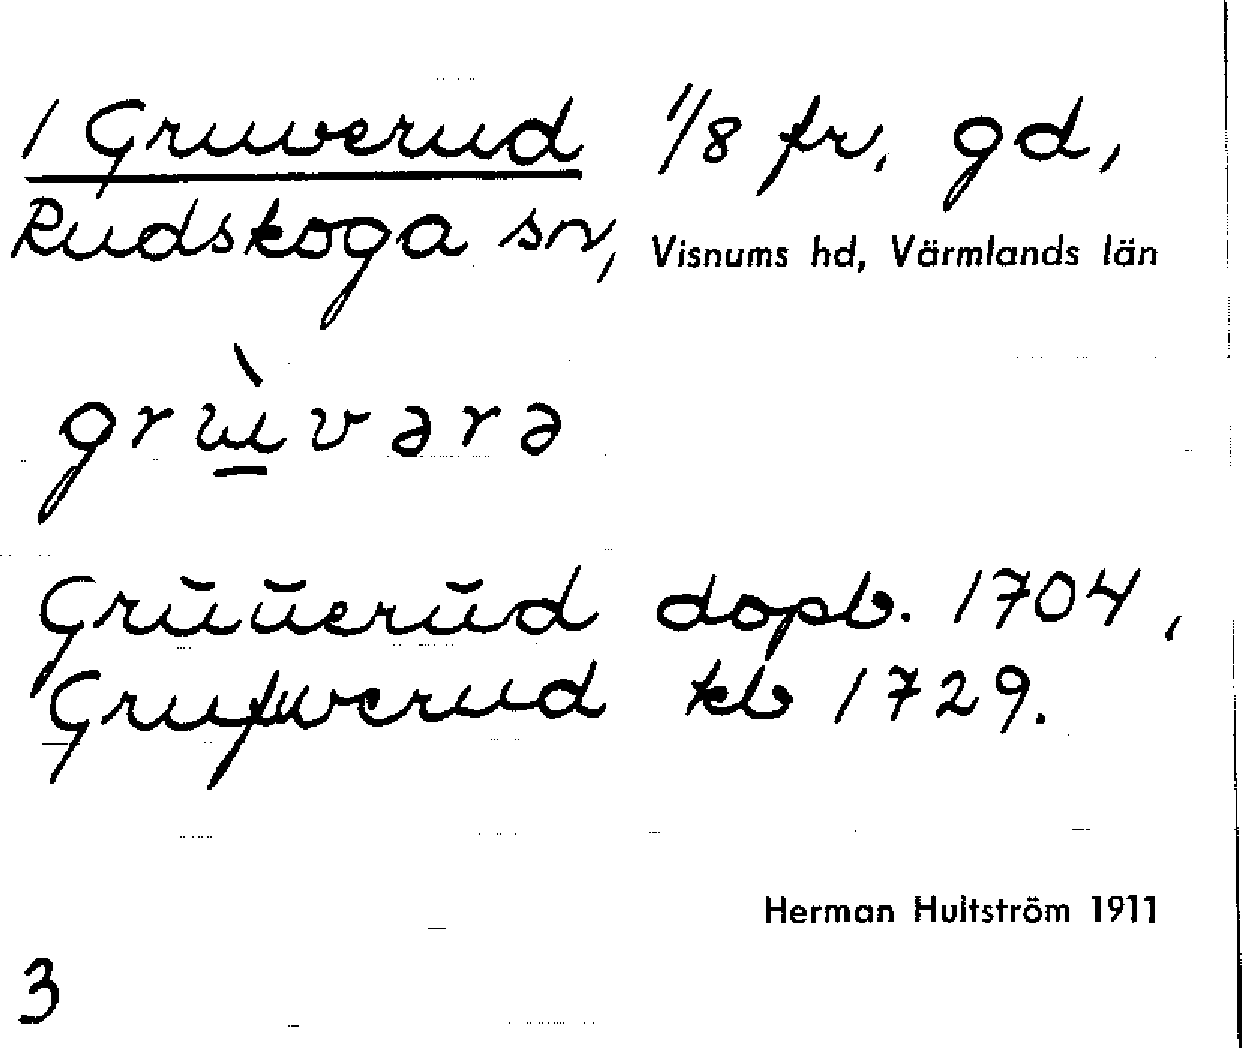 / Gruverud 1/8 fr. gd,
Rudskoga sn, Visnums hd, Värmlands län
grùvərə
Grŭŭerŭd dopb. 1704,
Grufwerud kb 1729.
Herman Hultström 1911
3